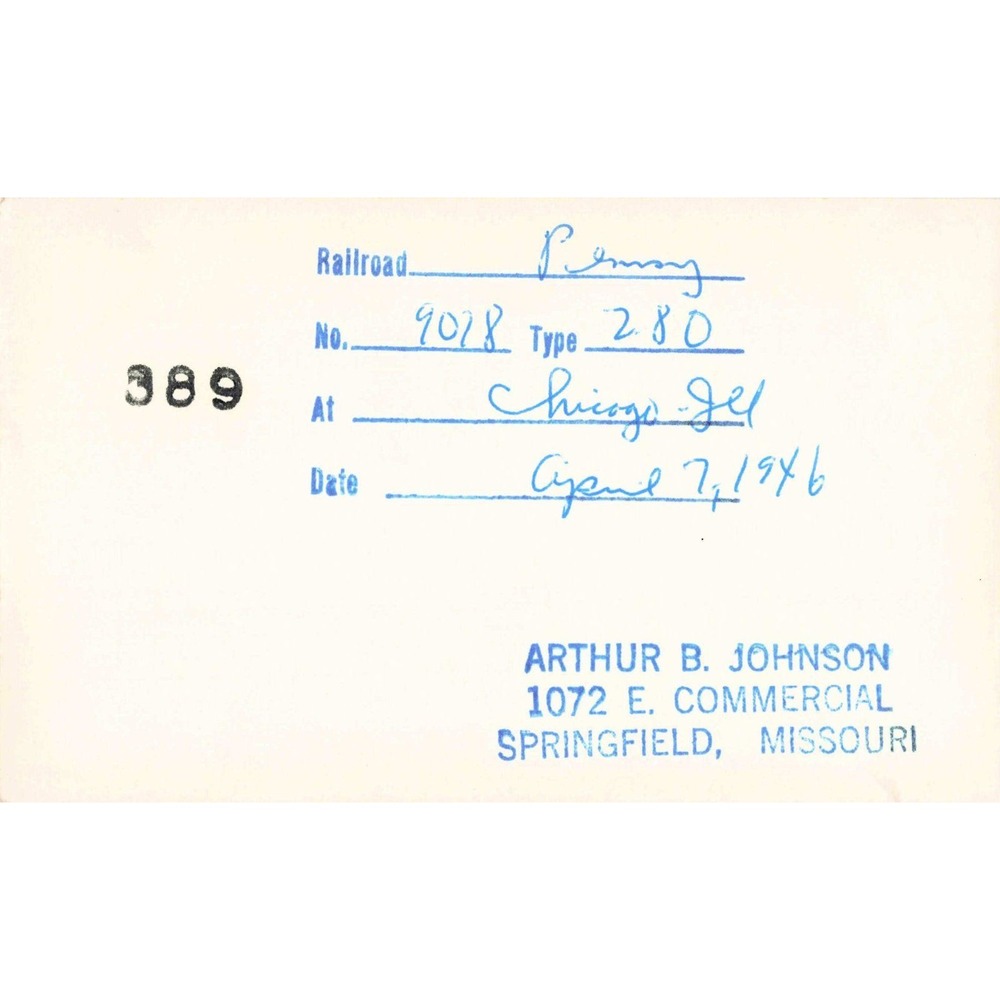 Railroad Pennsy
No. 9078 Type 280
389
At Chicago - Ill
Date April 7, 1946
ARTHUR B. JOHNSON
1072 E. COMMERCIAL
SPRINGFIELD, MISSOURI